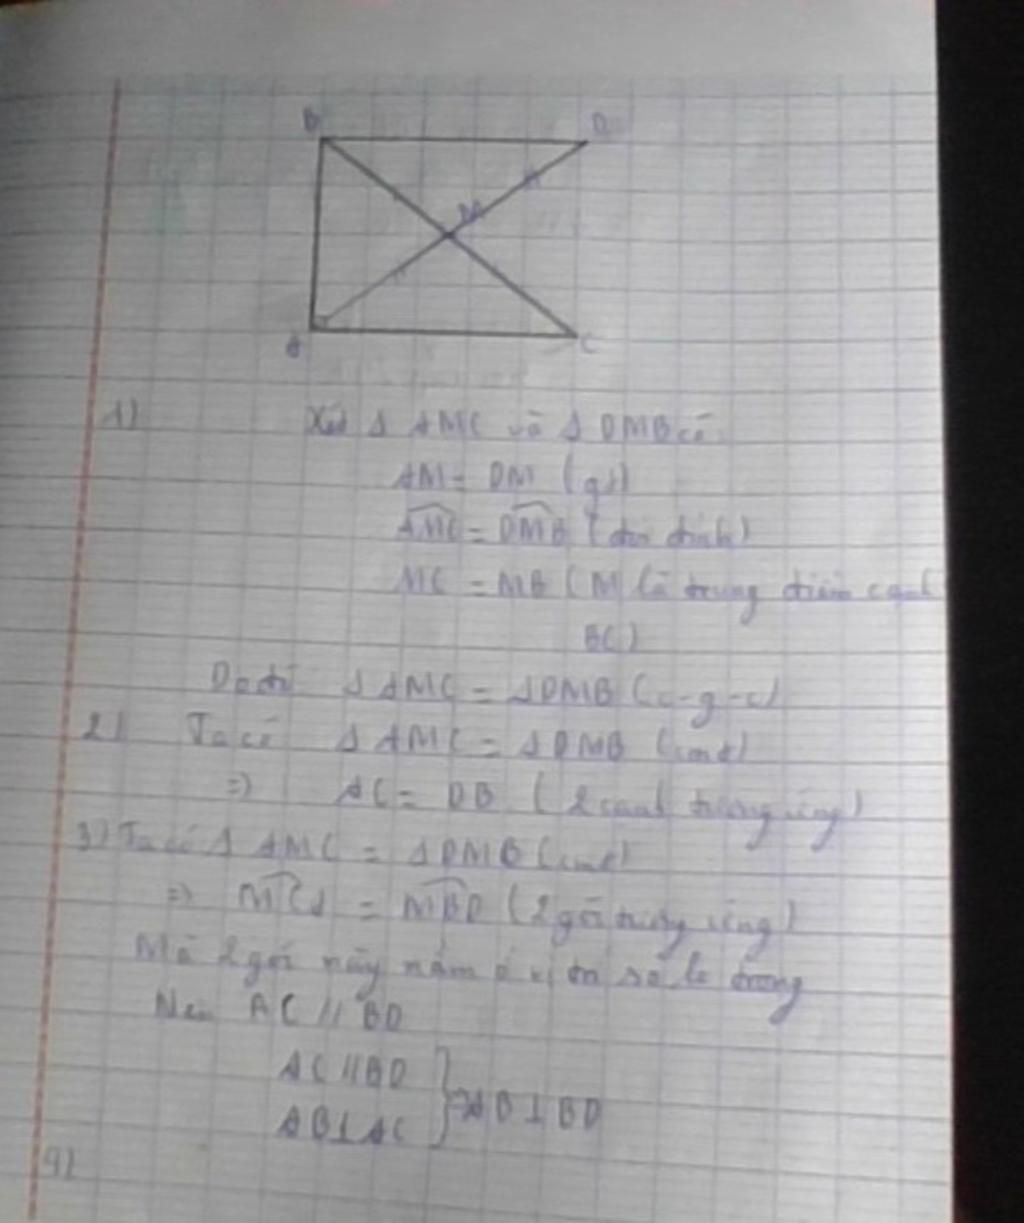 B D
M
A C
1) Xét Δ AMC và Δ DMB có
AM = DM (gt)
AMC = DMB (đối đỉnh)
MC = MB (M là trung điểm cạnh
BC)
Do đó Δ AMC = Δ DMB (c-g-c)
2) Ta có Δ AMC = Δ DMB (cmt)
=) AC = DB (2 cạnh tương ứng)
3) Ta có Δ AMC = Δ DMB (cmt)
=) MCA = MBD (2 góc tương ứng)
Mà 2 góc này nằm ở vị trí so le trong
Nên AC // BD
AC // BD
AB ⊥ AC } => AB ⊥ BD
4)